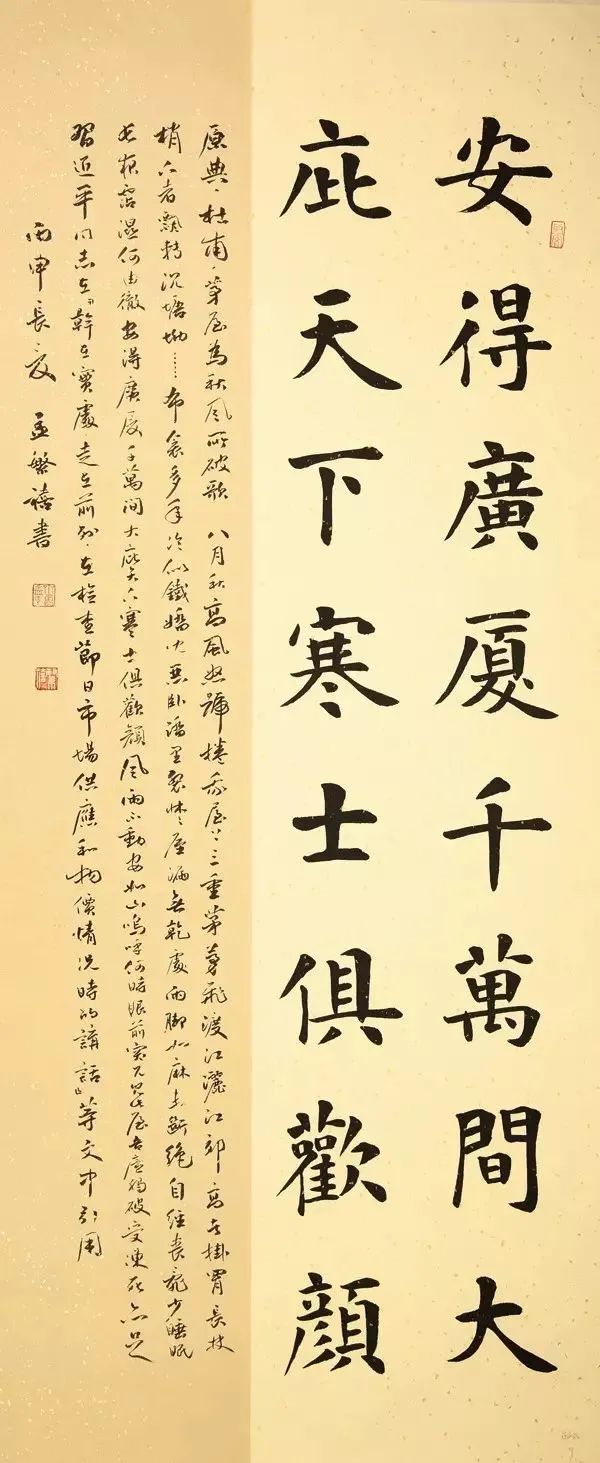 安得廣厦千萬間大
庇天下寒士俱歡顔
原典：杜甫《茅屋為秋風所破歌》 八月秋高風怒號捲我屋上三重茅茅飛渡江灑江郊高者掛罥長林
梢下者飄轉沉塘坳……布衾多年冷似鐵嬌兒惡臥踏里裂牀牀屋漏無乾處雨脚如麻未斷絶自經喪亂少睡眠
長夜霑濕何由徹安得廣厦千萬間大庇天下寒士俱歡顔風雨不動安如山嗚呼何時眼前突兀見此屋吾廬獨破受凍死亦足
習近平同志在《幹在實處走在前列·在檢查節日市場供應和物價情况時的講話》等文中引用
丙申長夏 孟繁禧書